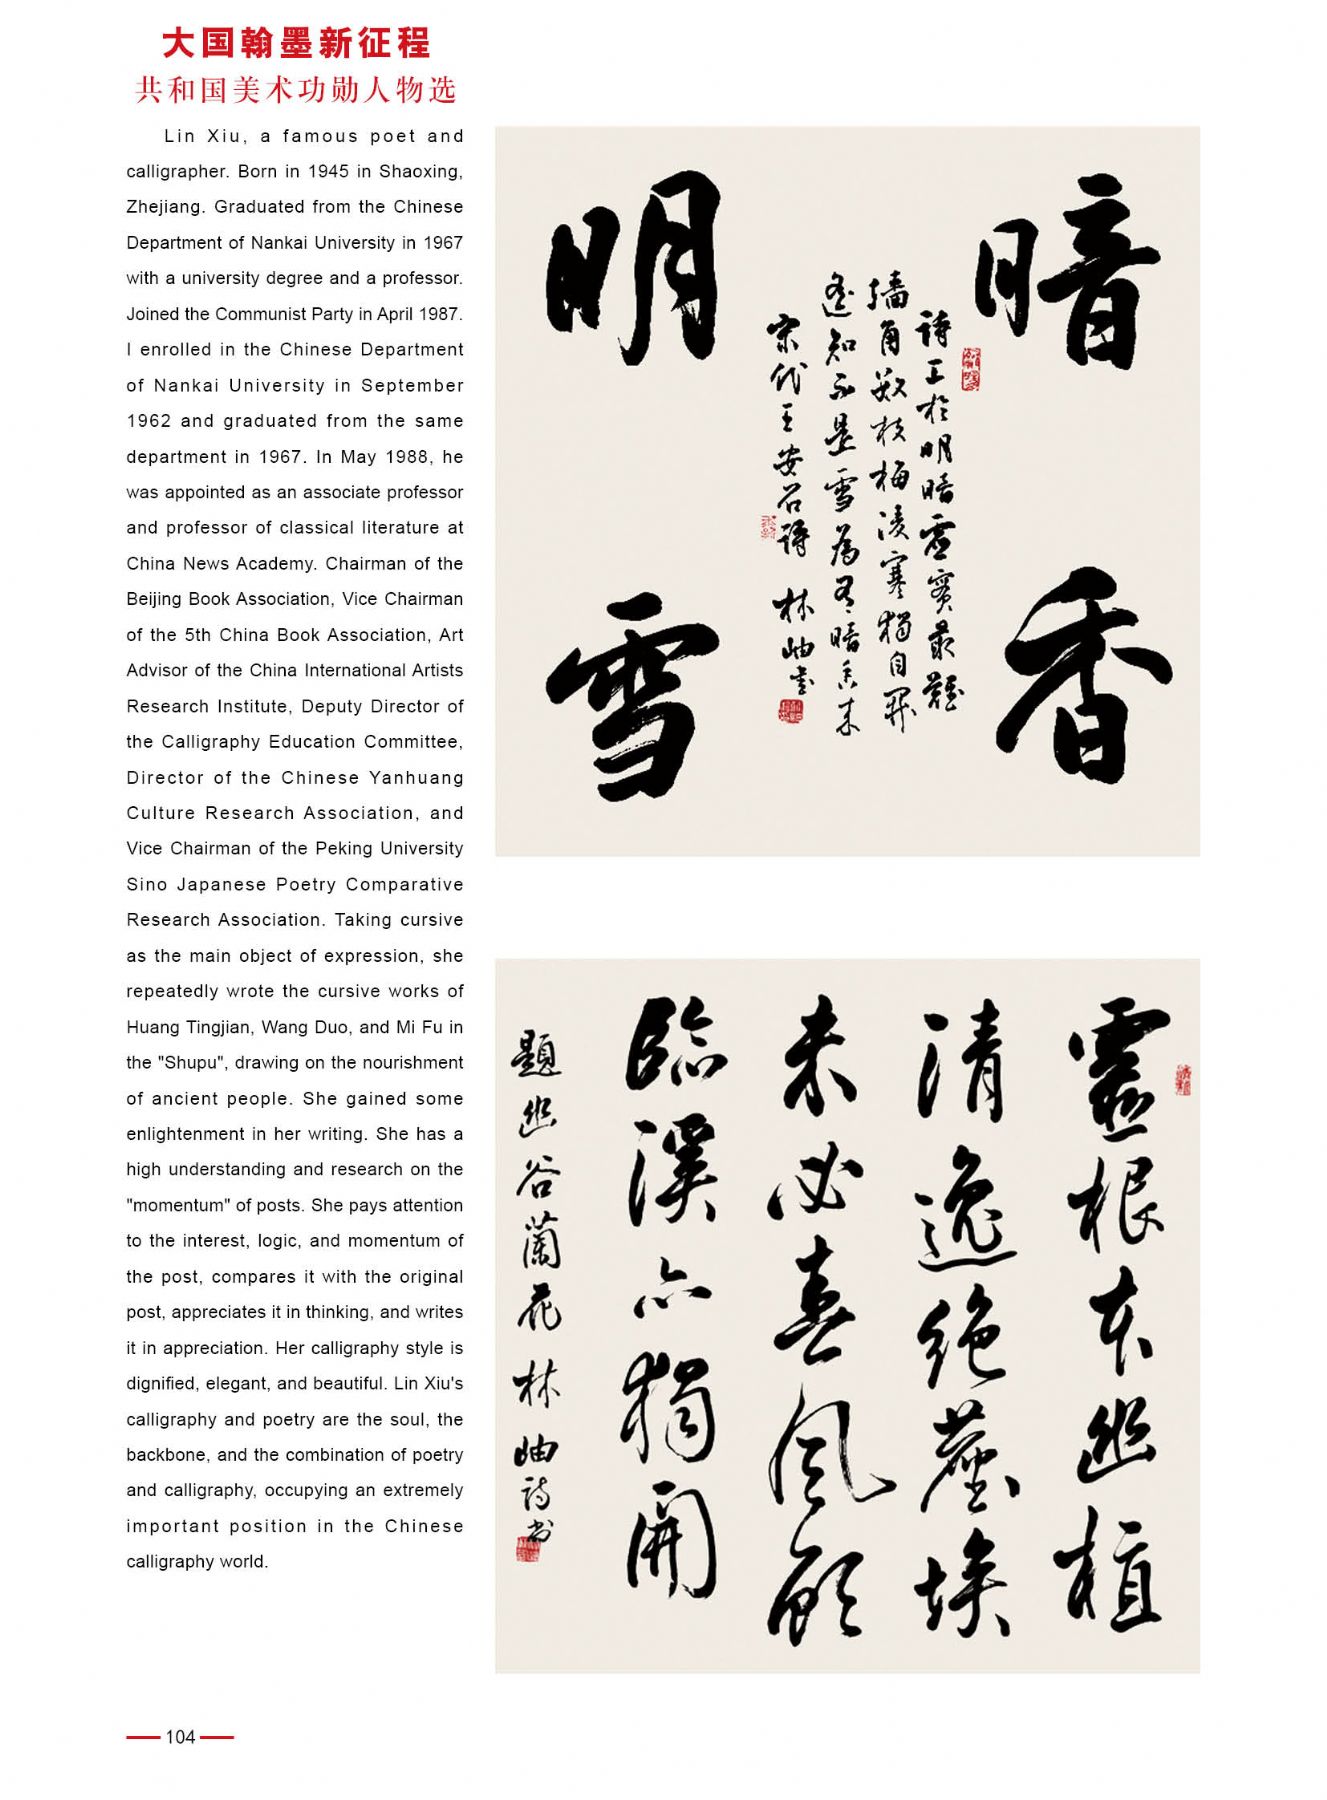 大国翰墨新征程
共和国美术功勋人物选
Lin Xiu, a famous poet and
calligrapher. Born in 1945 in Shaoxing,
Zhejiang. Graduated from the Chinese
Department of Nankai University in 1967
with a university degree and a professor.
Joined the Communist Party in April 1987.
I enrolled in the Chinese Department
of Nankai University in September
1962 and graduated from the same
department in 1967. In May 1988, he
was appointed as an associate professor
and professor of classical literature at
China News Academy. Chairman of the
Beijing Book Association, Vice Chairman
of the 5th China Book Association, Art
Advisor of the China International Artists
Research Institute, Deputy Director of
the Calligraphy Education Committee,
Director of the Chinese Yanhuang
Culture Research Association, and
Vice Chairman of the Peking University
Sino Japanese Poetry Comparative
Research Association. Taking cursive
as the main object of expression, she
repeatedly wrote the cursive works of
Huang Tingjian, Wang Duo, and Mi Fu in
the "Shupu", drawing on the nourishment
of ancient people. She gained some
enlightenment in her writing. She has a
high understanding and research on the
"momentum" of posts. She pays attention
to the interest, logic, and momentum of
the post, compares it with the original
post, appreciates it in thinking, and writes
it in appreciation. Her calligraphy style is
dignified, elegant, and beautiful. Lin Xiu's
calligraphy and poetry are the soul, the
backbone, and the combination of poetry
and calligraphy, occupying an extremely
important position in the Chinese
calligraphy world.
暗香
明雪
詩工於明暗虛實最難
墙角数枝梅凌寒獨自開
遥知不是雪為有暗香来
宋代王安石詩 林岫書
靈根本幽植
清逸絕塵埃
未必春風顧
臨溪亦獨開
題幽谷蘭花 林岫詩書
104